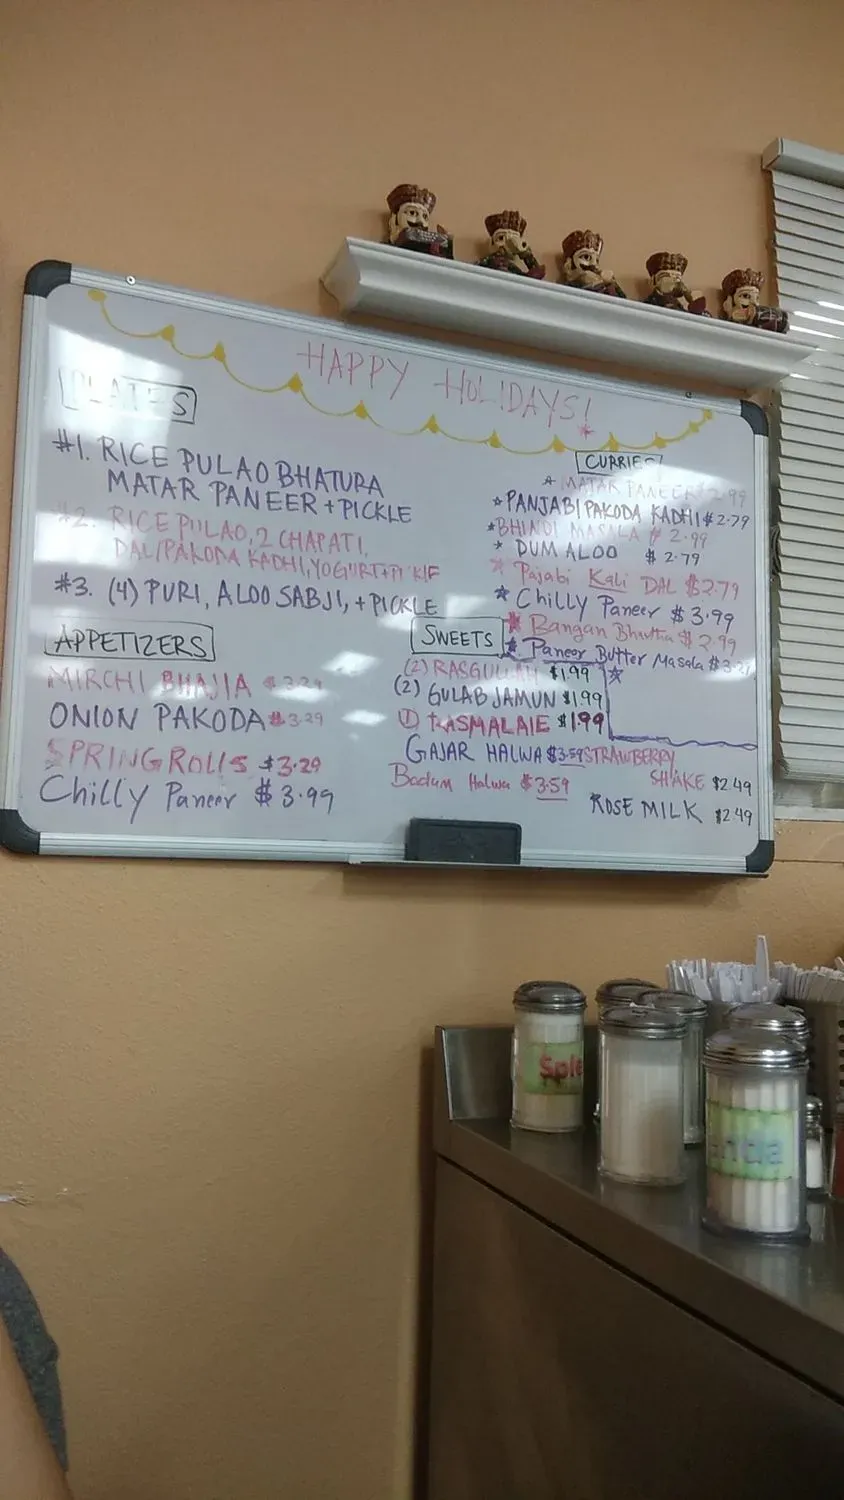 HAPPY HOLIDAYS!
PLATES
#1. RICE PULAO BHATURA
MATAR PANEER + PICKLE
#2. RICE PULAO, 2 CHAPATI,
DAL/PAKODA KADHI, YOGURT+PICKLE
#3. (4) PURI, ALOO SABJI, + PICKLE
APPETIZERS
MIRCHI BHAJIA $3.29
ONION PAKODA $3.29
SPRING ROllS $3.29
Chilly Paneer $3.99
CURRIES
MATAR PANEER $2.99
PANJABI PAKODA KADHI $2.79
BHINDI MASALA $2.99
DUM ALOO $2.79
Pajabi Kali DAL $2.79
Chilly Paneer $3.99
Bangan Bhartha $2.99
Paneer Butter Masala $3.29
SWEETS
(2) RASGULLAH $1.99
(2) GULAB JAMUN $1.99
(1) RASMALAIE $1.99
GAJAR HALWA $3.59
Badam Halwa $3.59
STRAWBERRY
SHAKE $2.49
ROSE MILK $2.49
Sple
anda